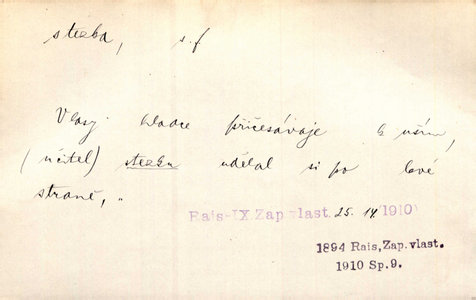 stezka, s.f
Vlasy hladce přičesávaje k uším,
(učitel) stezku udělal si po levé
straně, „
Rais-IX.Zap.vlast. 25. 14 (1910)
1894 Rais,Zap.vlast.
1910 Sp.9.